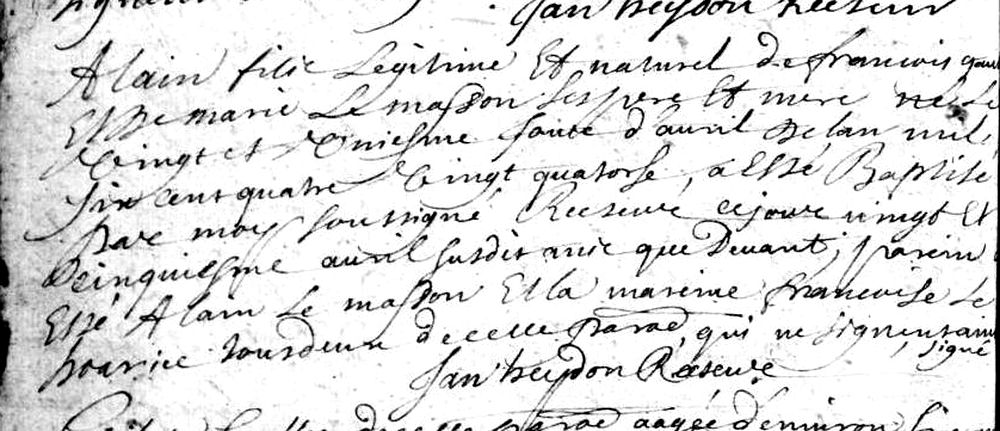 Jan heydon Recteur
Alain filz Legitime Et naturel de francois
Et de marie Le masson ses pere Et mere ne Le
vingt et uniesme jour d'auril de lan mil
six cent quatre vingt quatorse, a Esté Baptisé
par moy soussigné Recteur ce jour vingt Et
cinquiesme auril susdit anne que Deuant; parein
Esté Alain Le masson Et la mareine francoise Le
tousdeux de celle paroe, qui ne signent
signé
Jan heydon Recteur
de celle paroe aagée d'enuiron